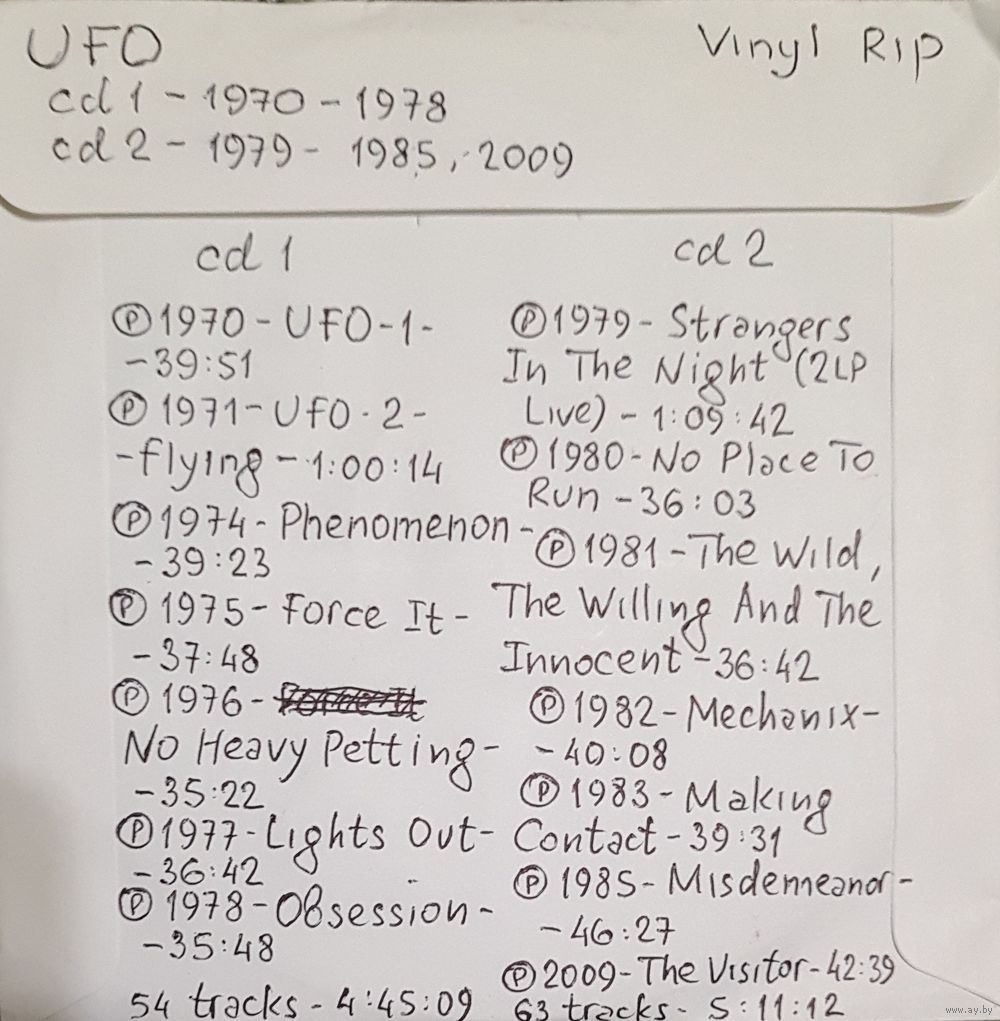 UFO
Vinyl Rip
cd 1 - 1970 - 1978
cd 2 - 1979 - 1985, 2009
cd 1
Ⓟ 1970 - UFO - 1 -
- 39:51
Ⓟ 1971 - UFO - 2 -
- flying - 1:00:14
Ⓟ 1974 - Phenomenon -
- 39:23
Ⓟ 1975 - Force It -
- 37:48
Ⓟ 1976 -
No Heavy Petting -
- 35:22
Ⓟ 1977 - Lights Out -
- 36:42
Ⓟ 1978 - Obsession -
- 35:48
54 tracks - 4:45:09
cd 2
Ⓟ 1979 - Strangers
In The Night (2LP
Live) - 1:09:42
Ⓟ 1980 - No Place To
Run - 36:03
Ⓟ 1981 - The Wild,
The Willing And The
Innocent - 36:42
Ⓟ 1982 - Mechanix -
- 40:08
Ⓟ 1983 - Making
Contact - 39:31
Ⓟ 1985 - Misdemeanor -
- 46:27
Ⓟ 2009 - The Visitor - 42:39
63 tracks - 5:11:12
www.ay.by